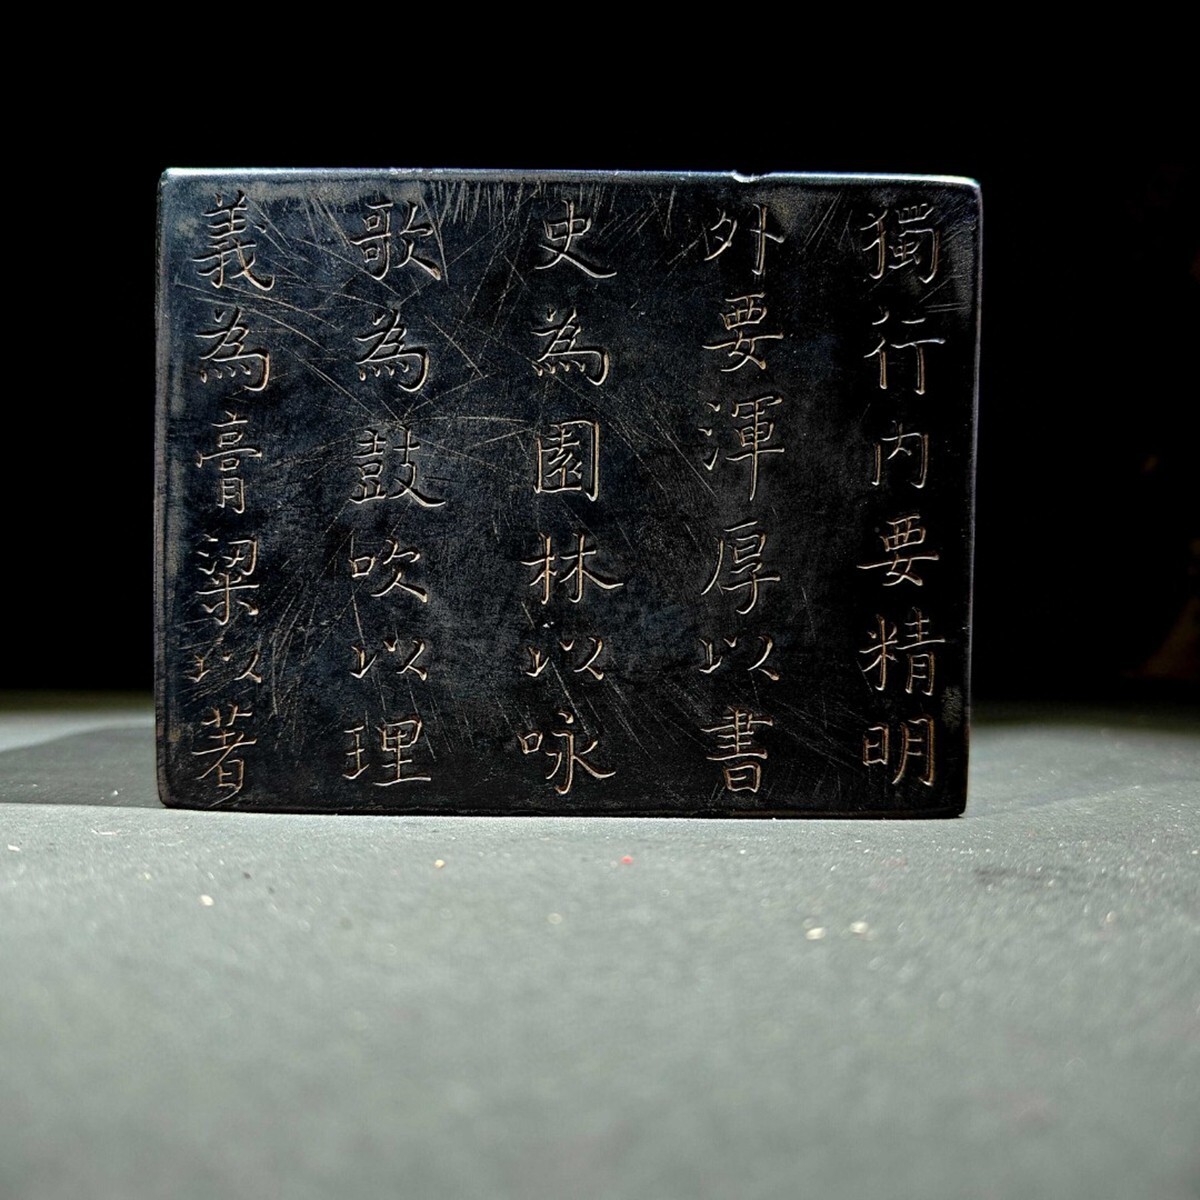 獨行內要精明
外要渾厚以書
史為園林以咏
歌為鼓吹以理
義為膏粱以著